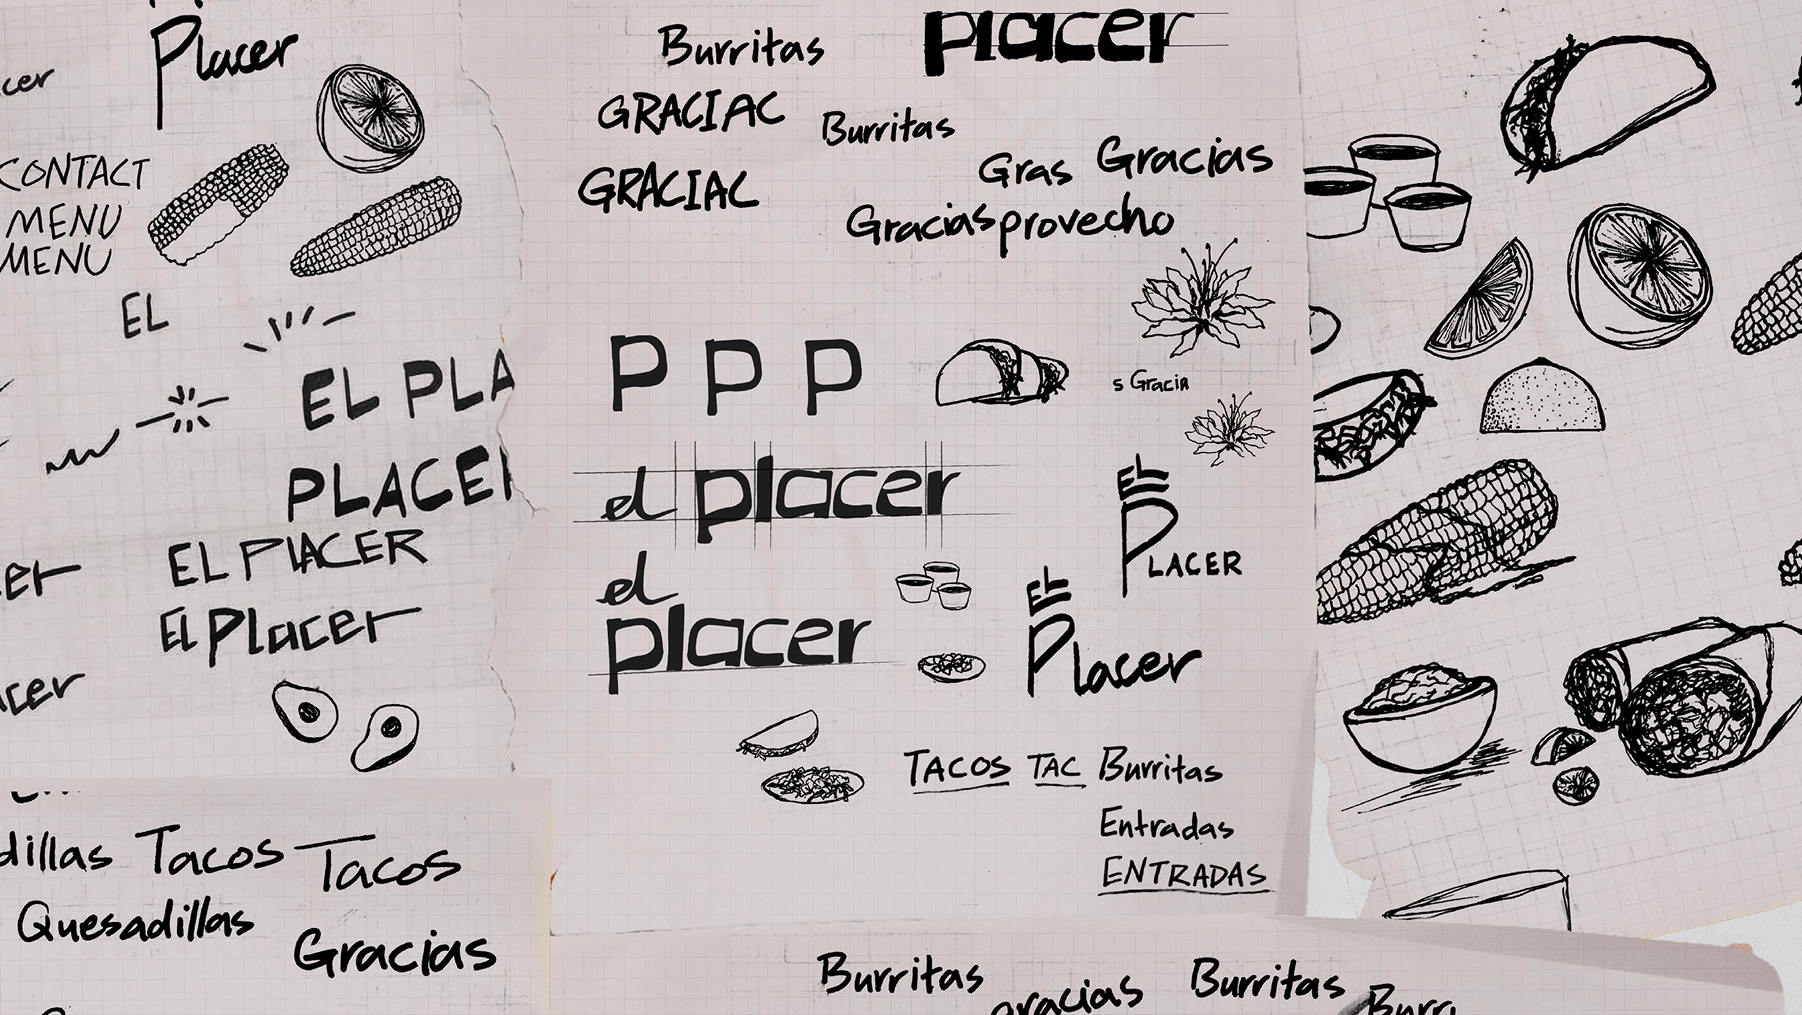 Placer
cer
CONTACT
MENU
MENU
EL
EL PLA
PLACE
EL PLACER
El Placer
er
cer
dillas Tacos Tacos
Quesadillas
Gracias
placer
Burritas
GRACIAC
Burritas
GRACIAC
Gras Gracias
Gracias provecho
P P P
s Gracia
el placer
EL
PLACER
el
placer
EL
Placer
TACOS TAC Burritas
Entradas
ENTRADAS
Burritas
gracias
Burritas
Burr